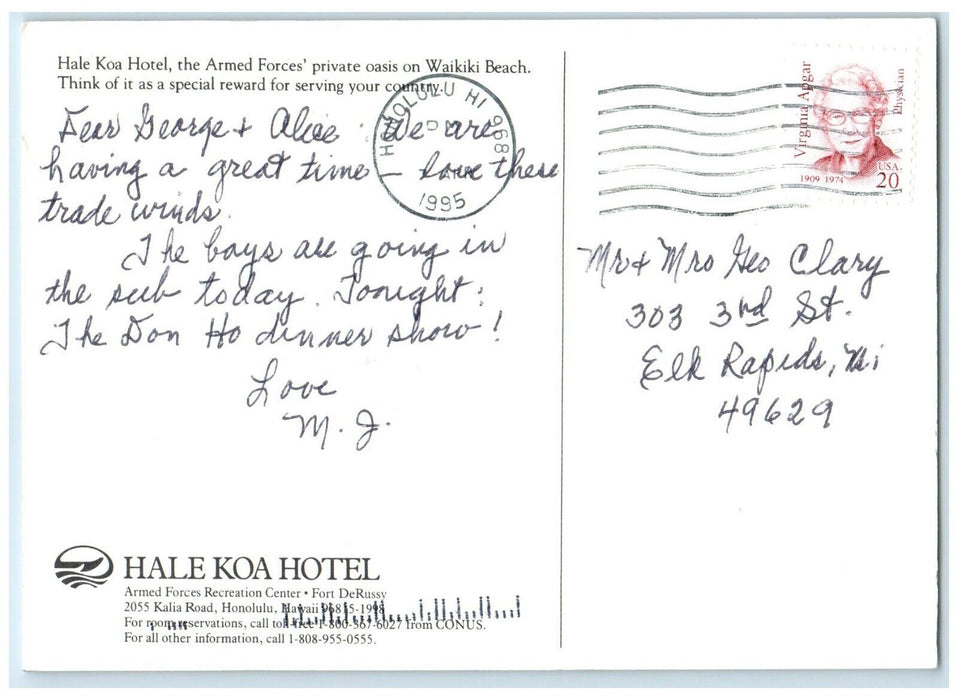 Hale Koa Hotel, the Armed Forces' private oasis on Waikiki Beach.
Think of it as a special reward for serving your country.
Dear George + Alice We are
having a great time – love these
trade winds.
The boys are going in
the sub today. Tonight:
The Don Ho dinner show!
Love
M. J.
HONOLULU HI 968
1995
Virginia Apgar
Physician
1909 1974
USA
20
Mr + Mrs Geo Clary
303 3rd St.
Elk Rapids, Mi
49629
HALE KOA HOTEL
Armed Forces Recreation Center • Fort DeRussy
2055 Kalia Road, Honolulu, Hawaii 96815-1998
For room reservations, call toll-free 1-800-367-6027 from CONUS.
For all other information, call 1-808-955-0555.